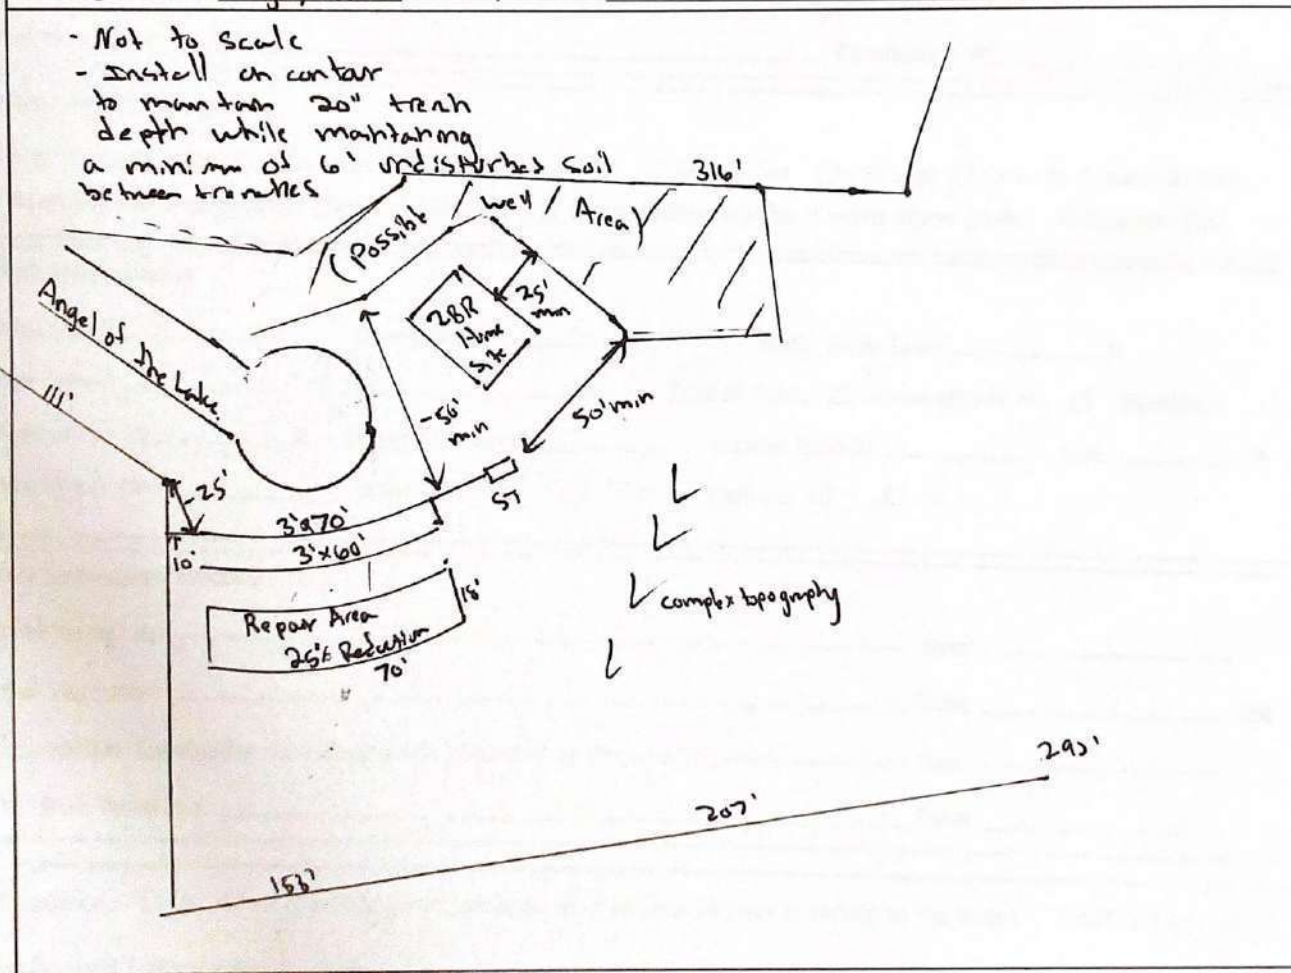 - Not to scale
- Install on contour
to mantain 20" trench
depth while mantaning
a minimum of 6' undisturbed soil
between trenches
316'
(Possible
Well
Area)
25'
min
2BR
Home
Site
Angel of the Lake
111'
-50'
min
50' min
ST
25'
3'x70'
3'x60'
10'
18'
Repair Area
25% Reduction
70'
complex topography
295'
207'
153'